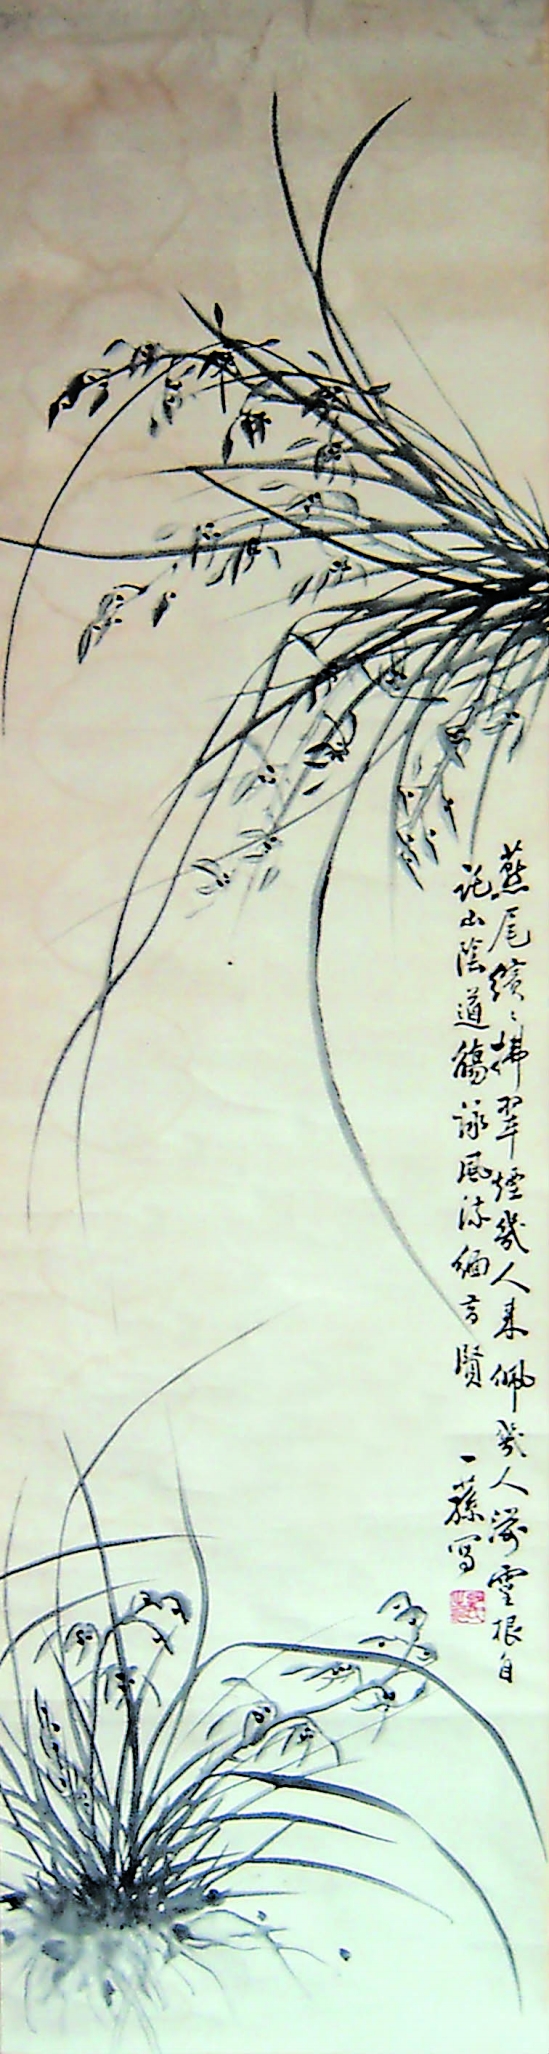 燕尾繽々拂翠煙幾人來佩幾人漪靈根自
託山陰道觴詠風流緬昔賢
一蓀寫